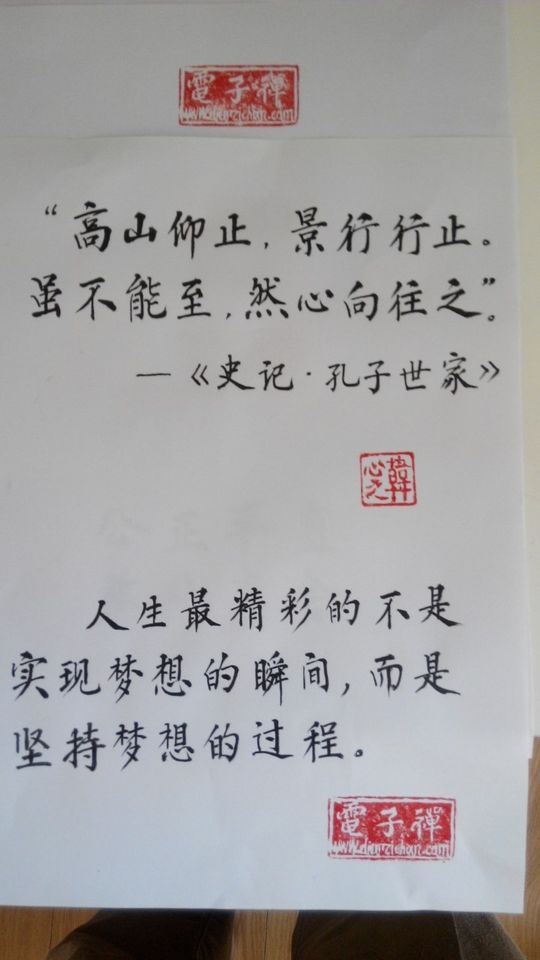 電子禪
www.dianzichan.com
“高山仰止，景行行止。
虽不能至，然心向往之”。
—《史记·孔子世家》
人生最精彩的不是
实现梦想的瞬间，而是
坚持梦想的过程。
電子禪
www.dianzichan.com